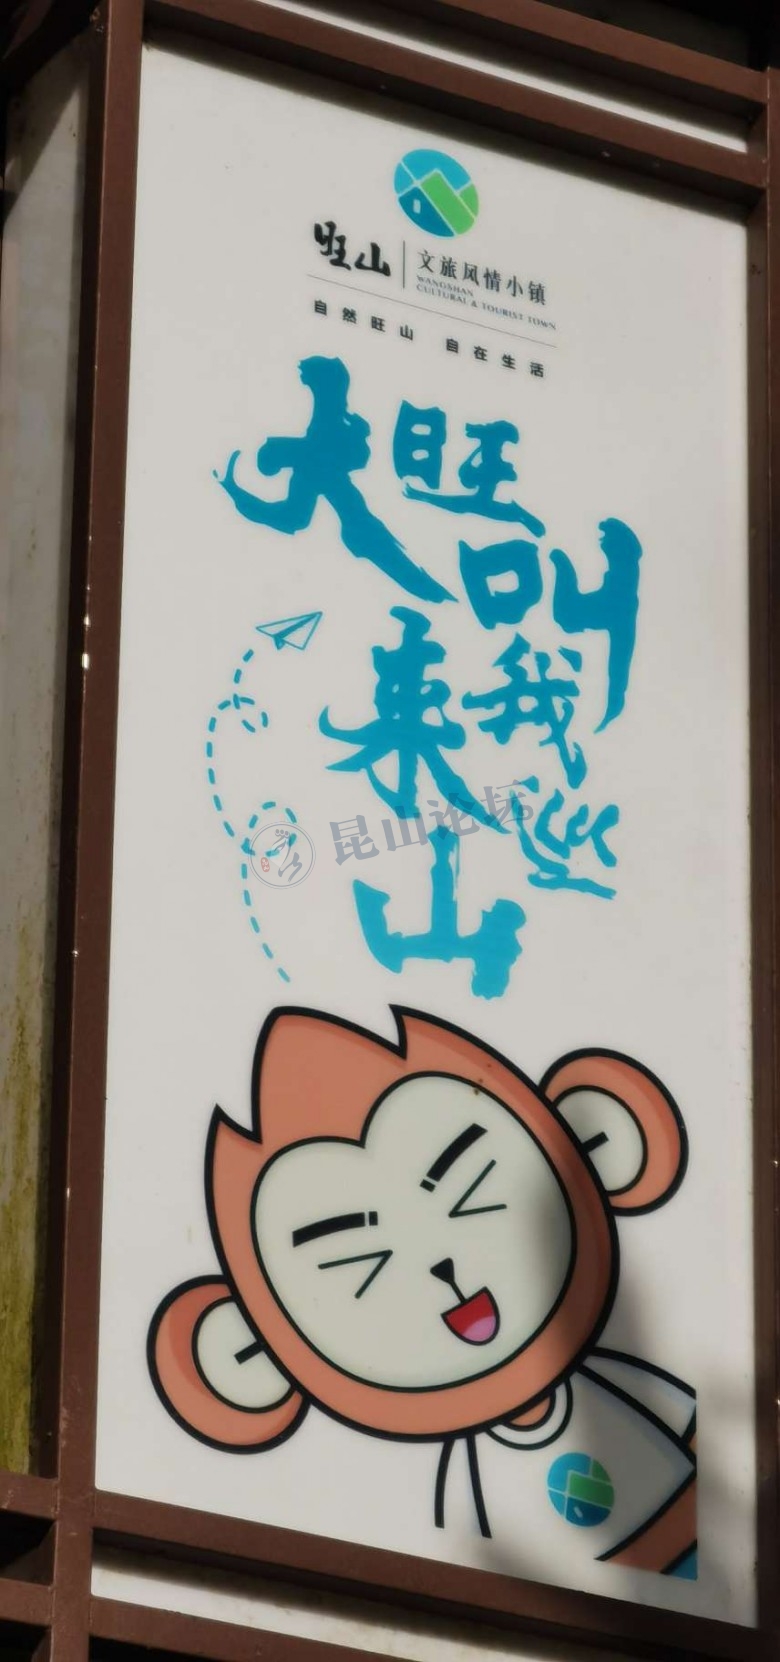 旺山 文旅风情小镇
WANGSHAN
CULTURAL & TOURIST TOWN
自然旺山 自在生活
大旺叫我来巡山
昆山论坛